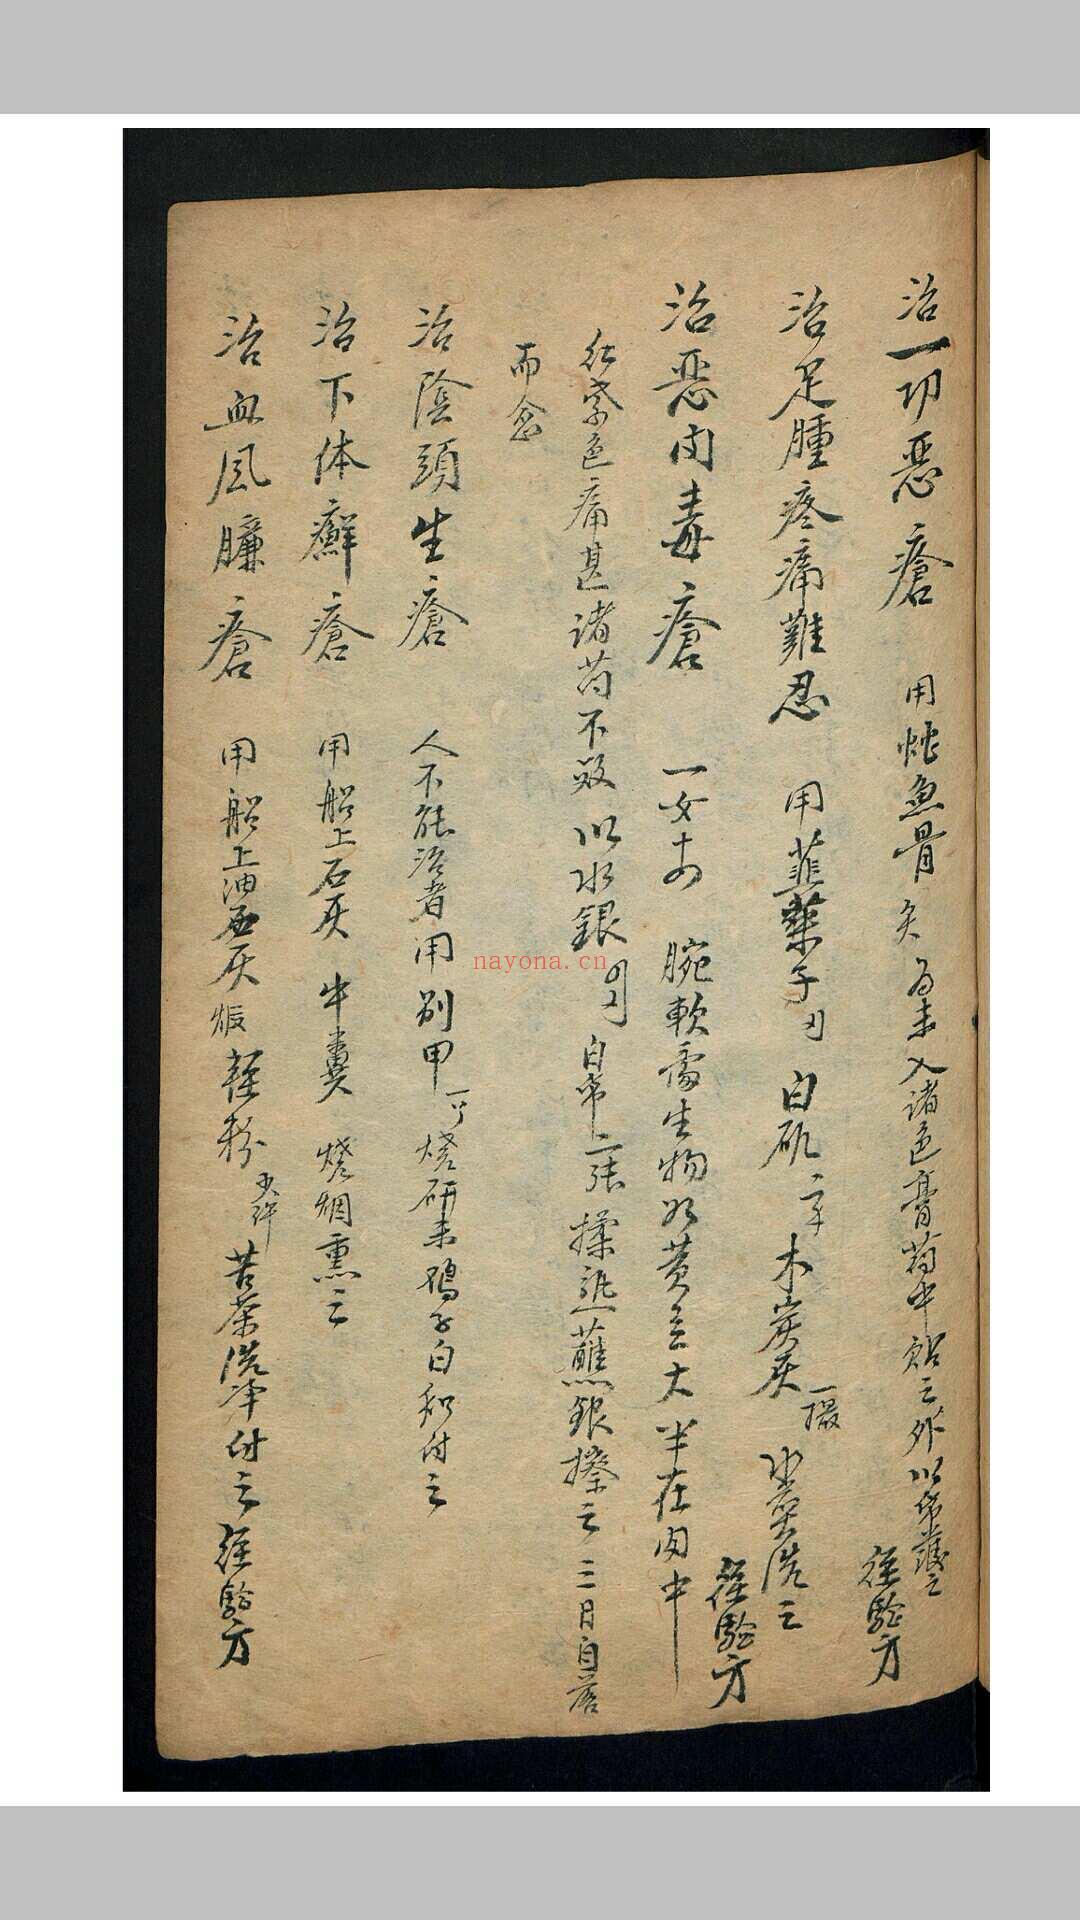 治一切惡瘡 用蛇魚骨灸为末入诸色膏药中貼之外以帋護之 経驗方
治足腫疼痛難忍 用韮菜子 白矾 木炭灰一撮 水煎洗之 経驗方
治惡肉毒瘡 一女 腕軟處生物如黄豆大半在肉中
红紫色痛甚諸药不效 以水銀 白帋二張揉熟蘸銀擦之三日自落
而愈
治陰頭生瘡 人不能治者用别甲一个燒研末鸡子白和付之
治下体癬瘡 用船上石灰 牛糞 燒烟熏之
治血风臁瘡 用船上油石灰煅 輕粉少許 苦茶洗净付之 経驗方
nayona.cn